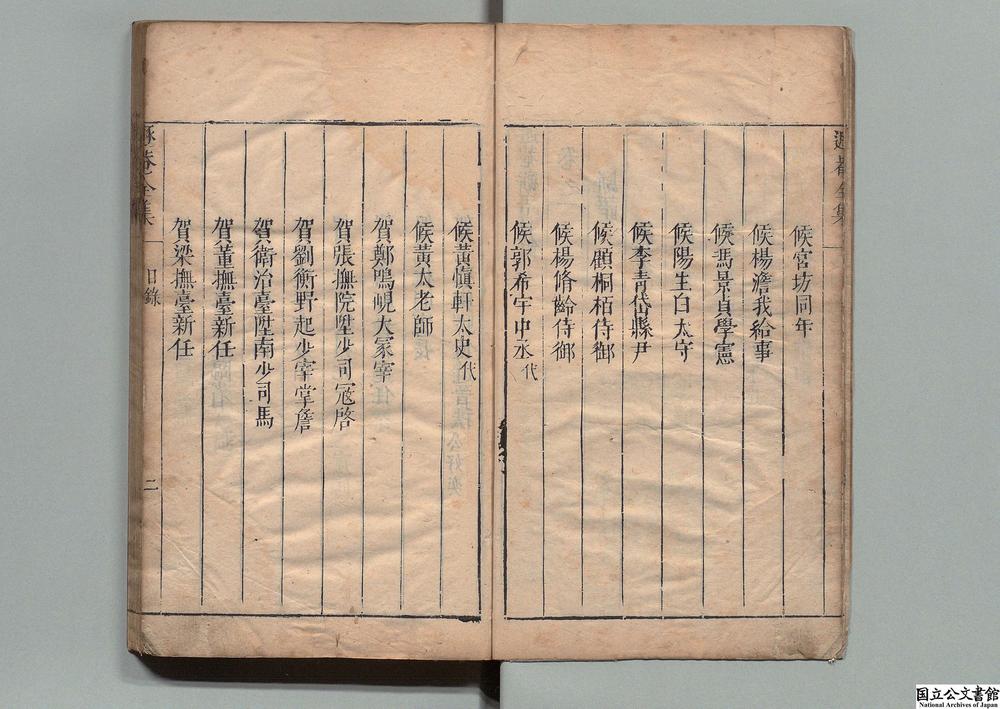 候宮坊同年
候楊澹我給事
候馮景貞學憲
候陽生白太守
候李青岱縣尹
候顧桐栢侍御
候楊脩齡侍御
候郭希宇中丞代
候黃愼軒太史代
候黃太老師
賀鄭鳴峴大冢宰
賀張撫院陞少司寇啓
賀劉衡野起少宰掌詹
賀衛治臺陞南少司馬
賀董撫臺新任
賀梁撫臺新任
目錄
二
国立公文書館
National Archives of Japan